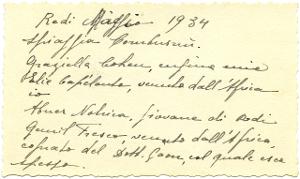 Rodi Maggio 1934
Spiaggia
Graziella Cohen, cugina mia
Capelouto, venuto dall'Africa
io
giovane di Rodi
Gemil Fresco, venuto dall'Africa,
cognato del Dott. Gaon, col quale esce
spesso.